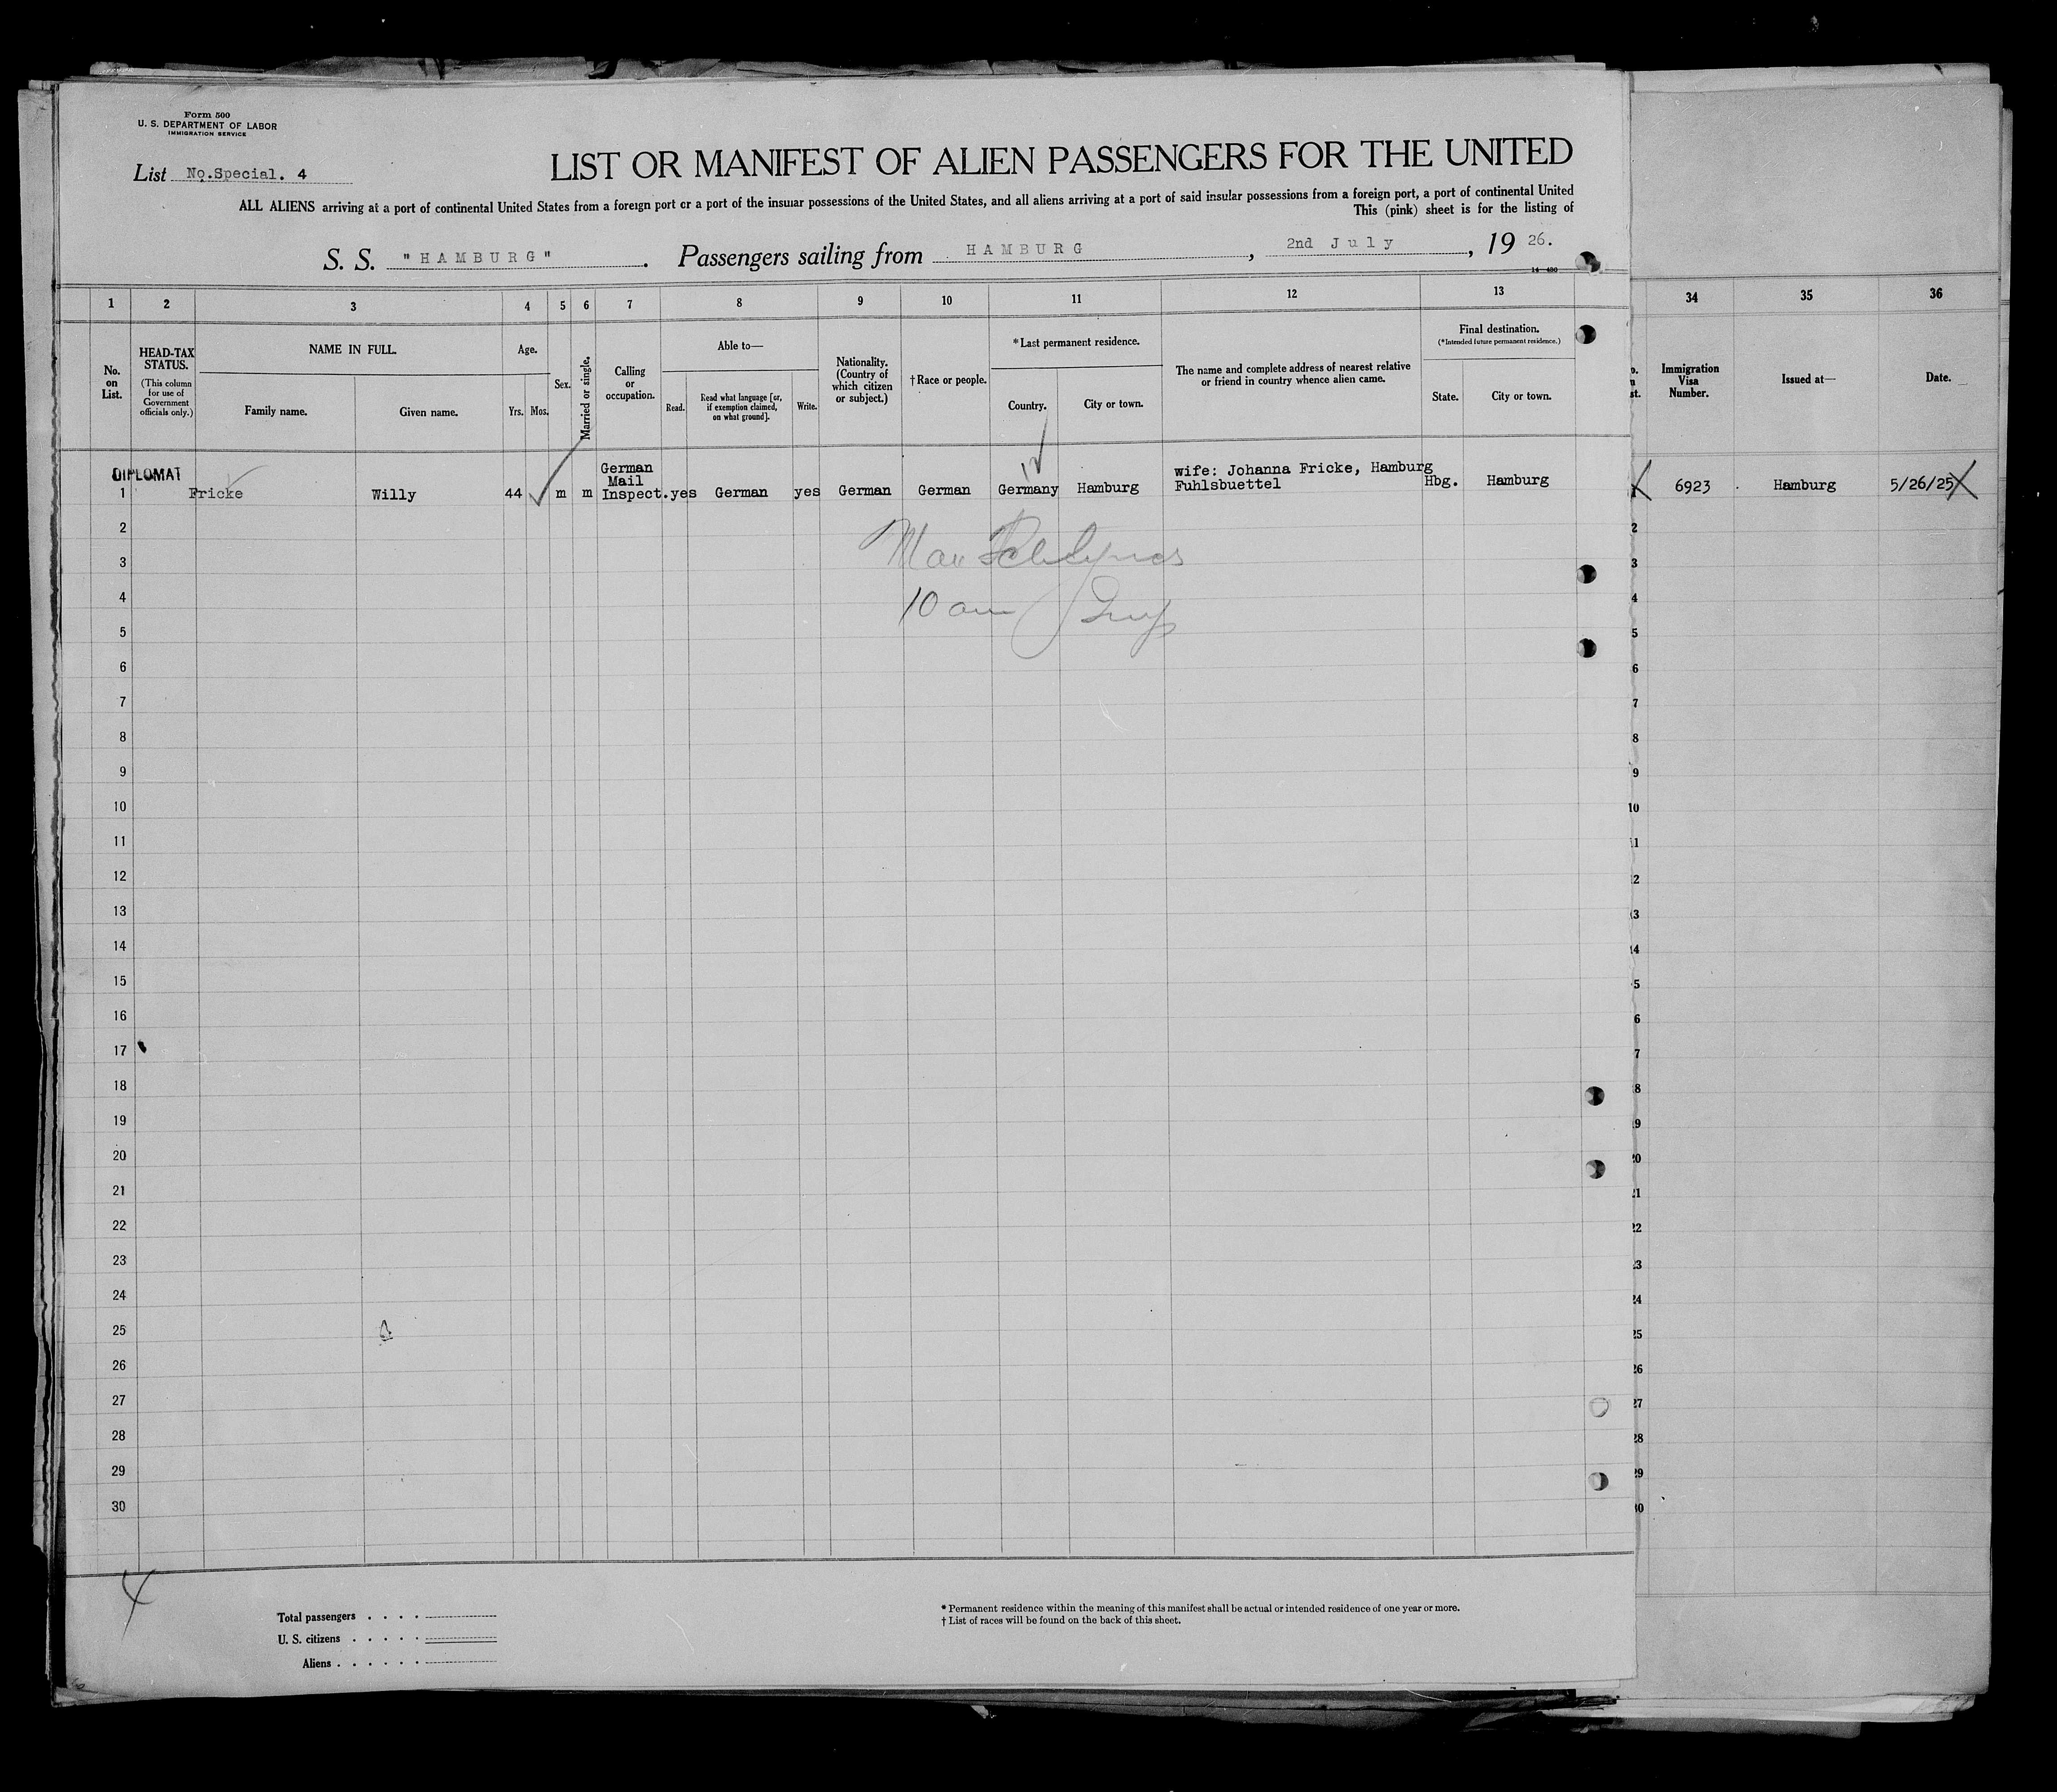 Form 500
U. S. DEPARTMENT OF LABOR
IMMIGRATION SERVICE
List No.Special. 4
LIST OR MANIFEST OF ALIEN PASSENGERS FOR THE UNITED
ALL ALIENS arriving at a port of continental United States from a foreign port or a port of the insular possessions of the United States, and all aliens arriving at a port of said insular possessions from a foreign port, a port of continental United
This (pink) sheet is for the listing of
S. S. "HAMBURG". Passengers sailing from HAMBURG, 2nd July, 1926.
14—430
1 2 3 4 5 6 7 8 9 10 11 12 13 34 35 36
No. on List.
HEAD-TAX STATUS.
(This column for use of Government officials only.)
NAME IN FULL.
Family name. Given name.
Age.
Yrs. Mos.
Sex.
Married or single.
Calling or occupation.
Able to—
Read. Read what language [or, if exemption claimed, on what ground]. Write.
Nationality. (Country of which citizen or subject.)
†Race or people.
*Last permanent residence.
Country. City or town.
The name and complete address of nearest relative or friend in country whence alien came.
Final destination.
(*Intended future permanent residence.)
State. City or town.
Immigration Visa Number.
Issued at—
Date.
DIPLOMAT
1 Fricke Willy 44 m m German Mail Inspect. yes German yes German German Germany Hamburg wife: Johanna Fricke, Hamburg Fuhlsbuettel Hbg. Hamburg 6923 Hamburg 5/26/25
2
3
10 am
4
5
6
7
8
9
10
11
12
13
14
15
16
17
18
19
20
21
22
23
24
25
26
27
28
29
30
Total passengers . . . .
U. S. citizens . . . . .
Aliens . . . . . .
* Permanent residence within the meaning of this manifest shall be actual or intended residence of one year or more.
† List of races will be found on the back of this sheet.